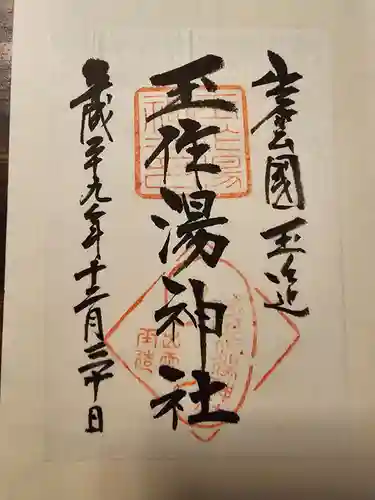 出雲國 玉造
玉作湯神社
平成廿九年十二月三十日